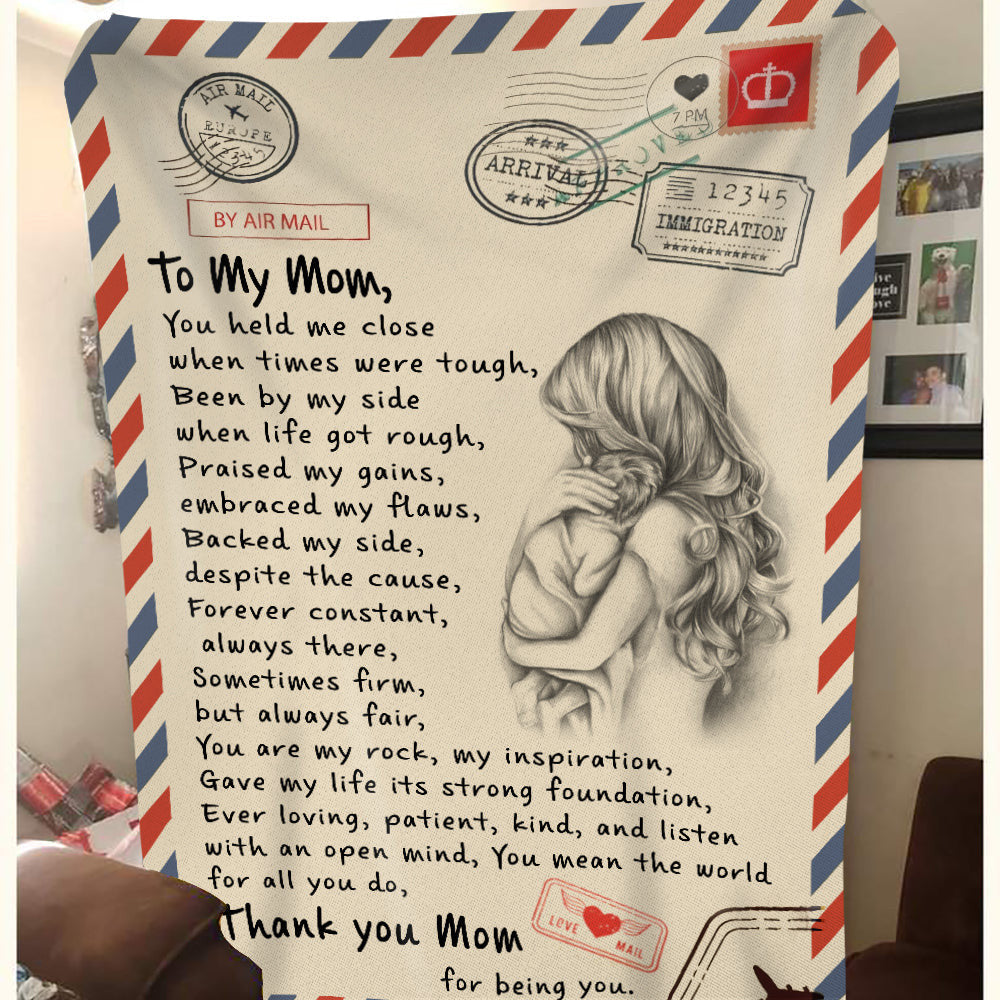 AIR MAIL
EUROPE
12345
7 PM
LOVE
ARRIVAL
12345
IMMIGRATION
BY AIR MAIL
To My Mom,
You held me close
when times were tough,
Been by my side
when life got rough,
Praised my gains,
embraced my flaws,
Backed my side,
despite the cause,
Forever constant,
always there,
Sometimes firm,
but always fair,
You are my rock, my inspiration,
Gave my life its strong foundation,
Ever loving, patient, kind, and listen
with an open mind, You mean the world
for all you do,
Thank you Mom
for being you.
LOVE MAIL